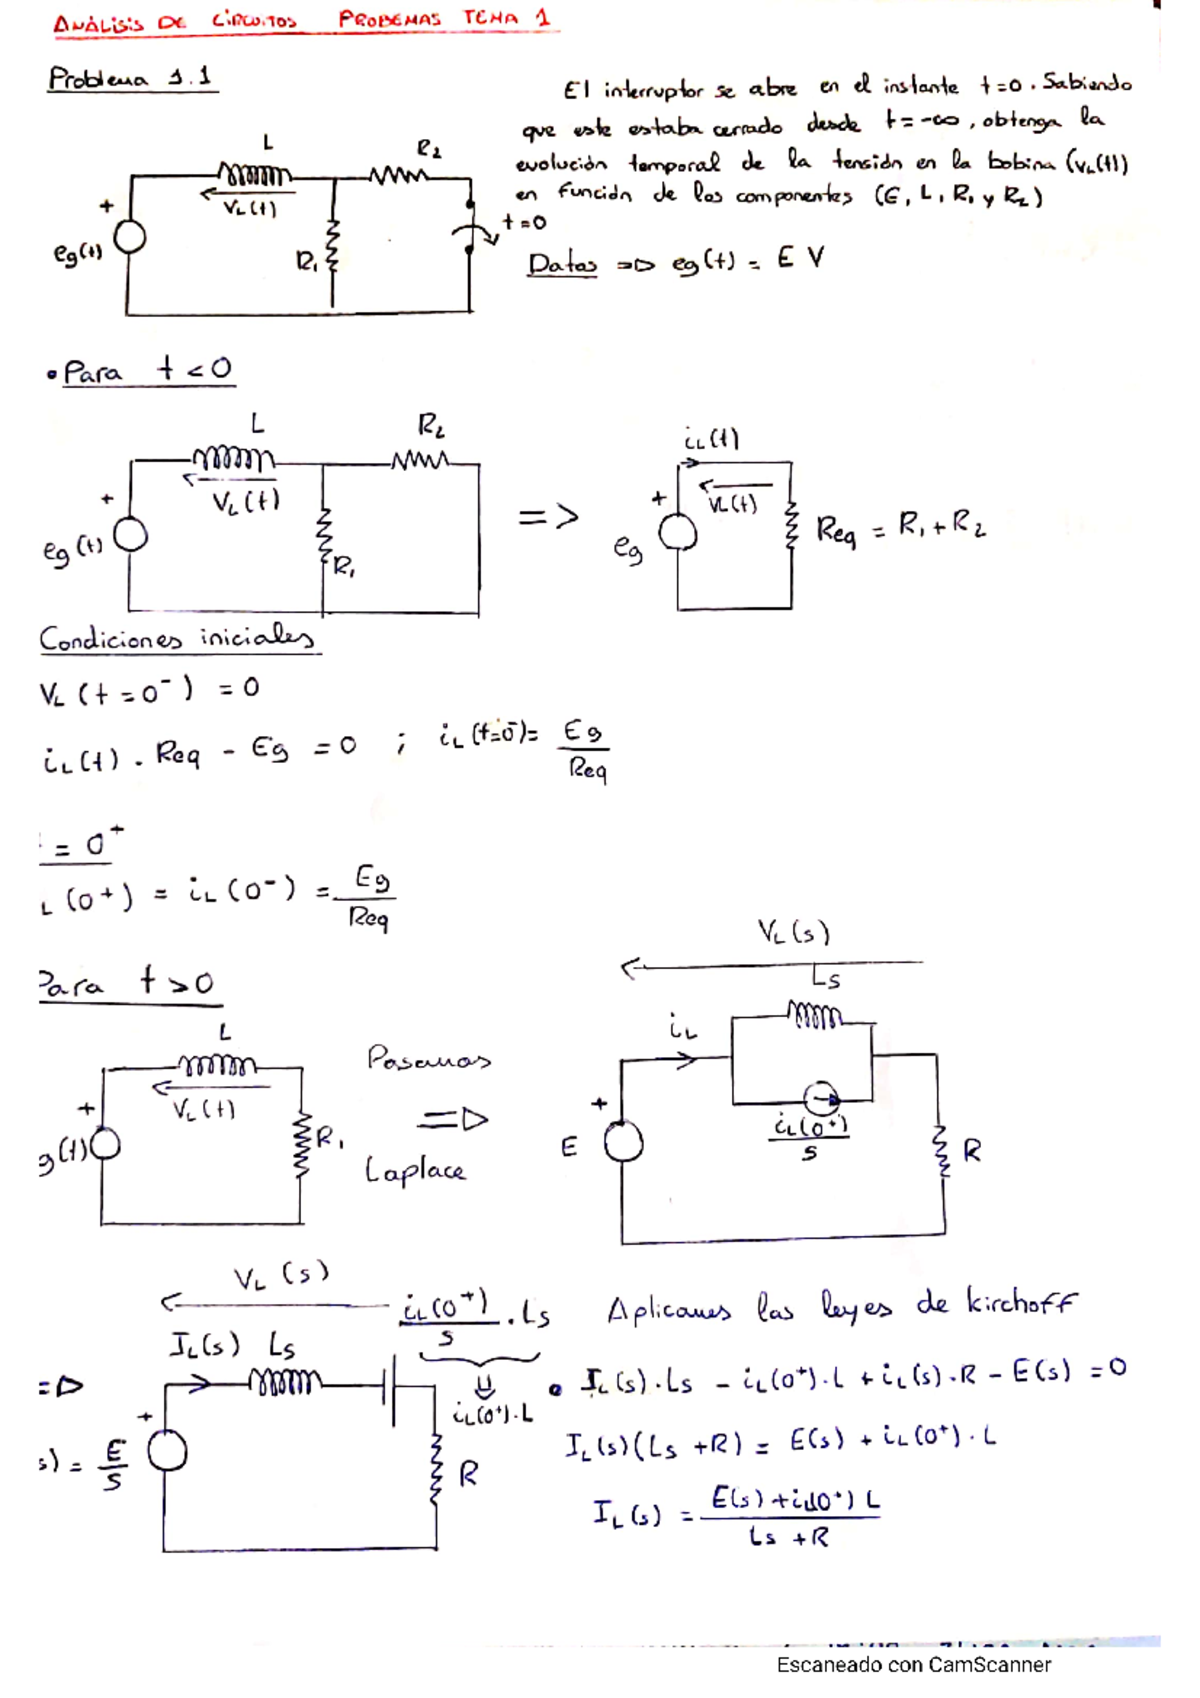 ANÁLISIS DE CIRCUITOS PROBEMAS TEMA 1
Problema 1.1
El interruptor se abre en el instante t=0. Sabiendo
que este estaba cerrado desde t=-∞, obtenga la
evolución temporal de la tensión en la bobina (VL(t))
en función de los componentes (E, L, R1 y R2)
Datos => eg(t) = E V
L
R2
+
VL(t)
t=0
eg(t)
R1
• Para t<0
L
R2
iL(t)
+
VL(t)
=>
+
VL(t)
Req = R1+R2
eg(t)
R1
eg
Condiciones iniciales
VL(t=0-) = 0
iL(t) . Req - Eg = 0 ; iL(t=0-)= Eg/Req
= 0+
L(0+) = iL(0-) = Eg/Req
Para t>0
VL(s)
Ls
L
iL
Pasamos
+
VL(t)
=>
+
g(t)
R1
Laplace
E
iL(0+)/s
R
VL(s)
iL(0+)/s . Ls
Aplicamos las leyes de Kirchoff
IL(s) Ls
=>
iL(0+).L
• IL(s).Ls - iL(0+).L + iL(s).R - E(s) = 0
+
s) = E/s
R
IL(s)(Ls+R) = E(s) + iL(0+).L
IL(s) = E(s)+iL(0+) L / Ls+R
Escaneado con CamScanner